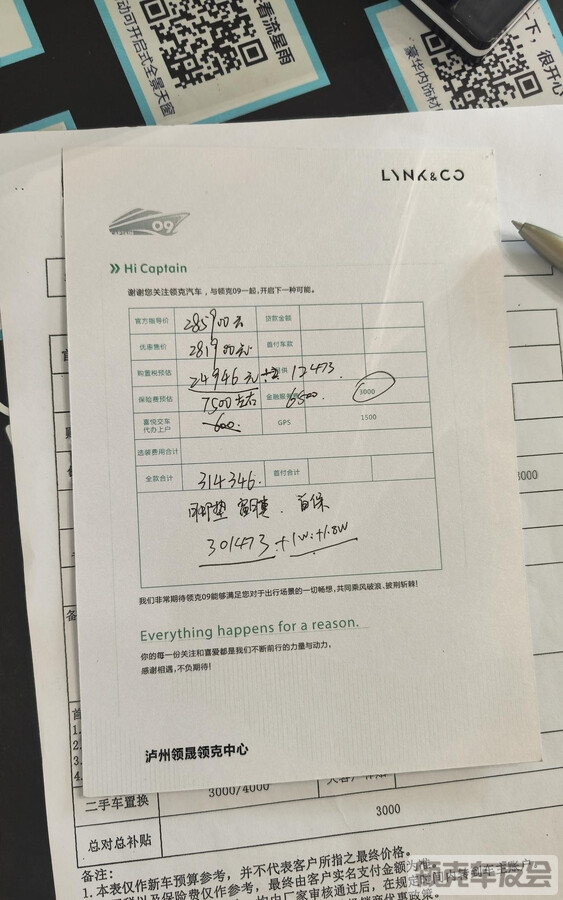 看流星雨
动可开启式全景天窗
一下，很开心
豪华内饰材
LYNK&CO
CAPTAIN 09
Hi Captain
谢谢您关注领克汽车，与领克09一起，开启下一种可能。
官方指导价 285900元 贷款金额
优惠售价 281900元 首付车款
购置税预估 24946元 12473.
保险费预估 7500左右 金融服务费 6500 3000
喜悦交车
代办上户 600 GPS 1500
选装费用合计
全款合计 314346. 首付合计
脚垫 窗膜. 首保
301473+1W+1.8W
我们非常期待领克09能够满足您对于出行场景的一切畅想，共同乘风破浪、披荆斩棘！
Everything happens for a reason.
你的每一份关注和喜爱都是我们不断前行的力量与动力，
感谢相遇，不负期待！
泸州领晟领克中心
3000
二手车置换 3000/4000
总对总补贴 3000
备注：
1. 本表仅作新车预算参考，并不代表客户所指之最终价格。
领克车友会